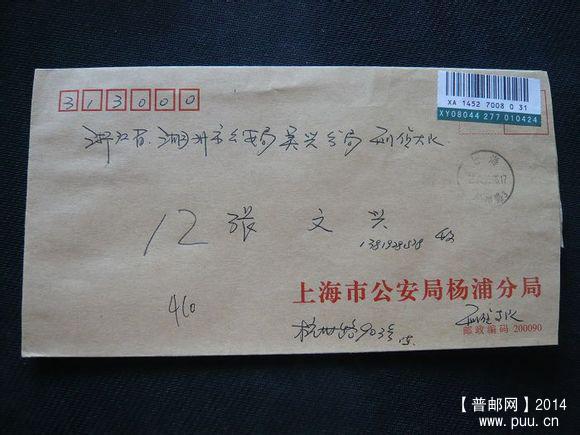 313000
XA 1452 7008 0 31
XY08044 277 010424
浙江省湖州市公安局吴兴分局刑侦大队
12 张文兴 收
460
上海市公安局杨浦分局
刑侦支队
杭州路903号
邮政编码 200090
【普邮网】2014
www.puu.cn